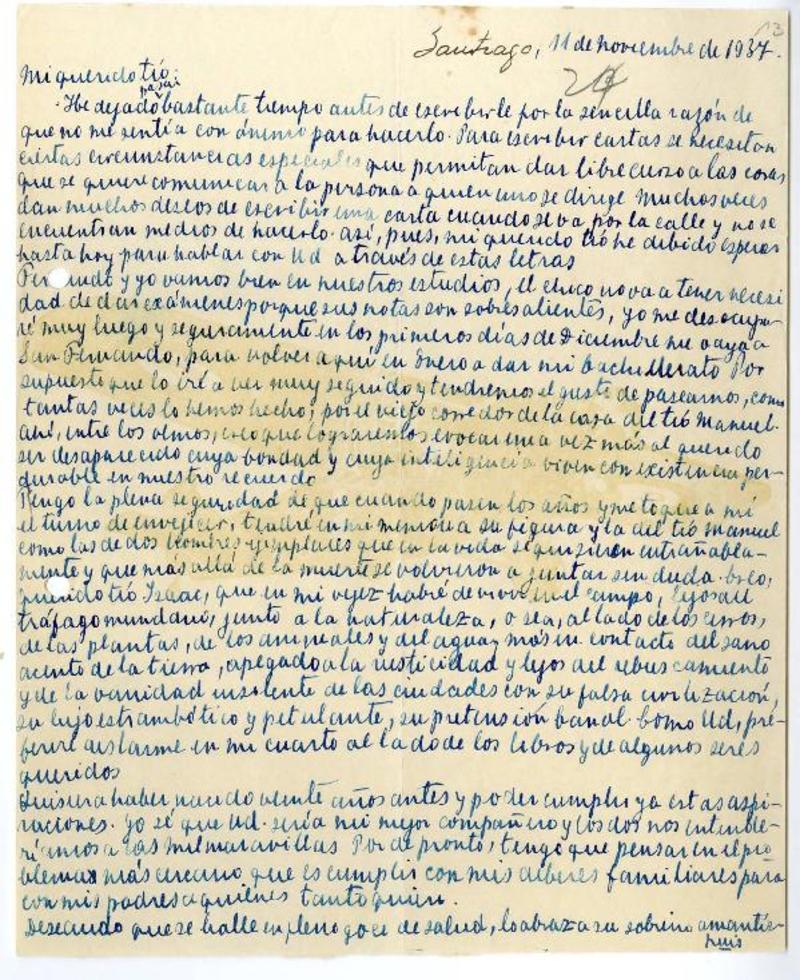 13
Santiago, 11 de noviembre de 1937.
24
Mi querido tío:
pasar
He dejado bastante tiempo antes de escribirle por la sencilla razón de
que no me sentía con ánimo para hacerlo. Para escribir cartas se necesitan
ciertas circunstancias especiales que permitan dar libre curso a las cosas
que se quiere comunicar a la persona a quien uno se dirige. Muchas veces
dan muchos deseos de escribir una carta cuando se va por la calle y no se
encuentran medios de hacerlo. así, pues, mi querido tío he debido esperar
hasta hoy para hablar con Ud a través de estas letras
Fernando y yo vamos bien en nuestros estudios, el chico no va a tener necesi
dad de dar exámenes porque sus notas son sobresalientes, yo me desocupa-
ré muy luego y seguramente en los primeros días de Diciembre me vaya a
San Fernando, para volver aquí en Enero a dar mi bachillerato. Por
supuesto que lo iré a ver muy seguido y tendremos el gusto de pasearnos, como
tantas veces lo hemos hecho, por el viejo corredor de la casa del tío Manuel.
ahí, entre los olmos, creo que lograremos evocar una vez más al querido
ser desaparecido cuya bondad y cuya inteligencia viven con existencia per-
durable en nuestro recuerdo
Tengo la plena seguridad de que cuando pasen los años y me toque a mí
el turno de envejecer, tendré en mi memoria su figura y la del tío Manuel
como las de dos hombres ejemplares que en la vida se quisieron entrañabla-
mente y que más allá de la muerte se volvieron a juntar sin duda. Creo,
querido tío Isaac, que en mi vejez habré de vivir en el campo, lejos del
tráfago mundano, junto a la naturaleza, o sea, al lado de los cerros,
de las plantas, de los animales y del agua, más en contacto del sano
acento de la tierra, apegado a la rusticidad y lejos del rebuscamiento
y de la vanidad insolente de las ciudades con su falsa civilización,
su lujo estrambótico y petulante, su pretensión banal. Como Ud, pre-
feriré aislarme en mi cuarto al lado de los libros y de algunos seres
queridos
Quisiera haber nacido veinte años antes y poder cumplir ya estas aspi-
raciones. Yo sé que Ud. sería mi mejor compañero y los dos nos entende-
ríamos a las mil maravillas. Por de pronto, tengo que pensar en el pro
blema más cercano que es cumplir con mis deberes familiares para
con mis padres a quienes tanto quiero.
Deseando que se halle en pleno goce de salud, lo abraza su sobrino amantís-
Luis